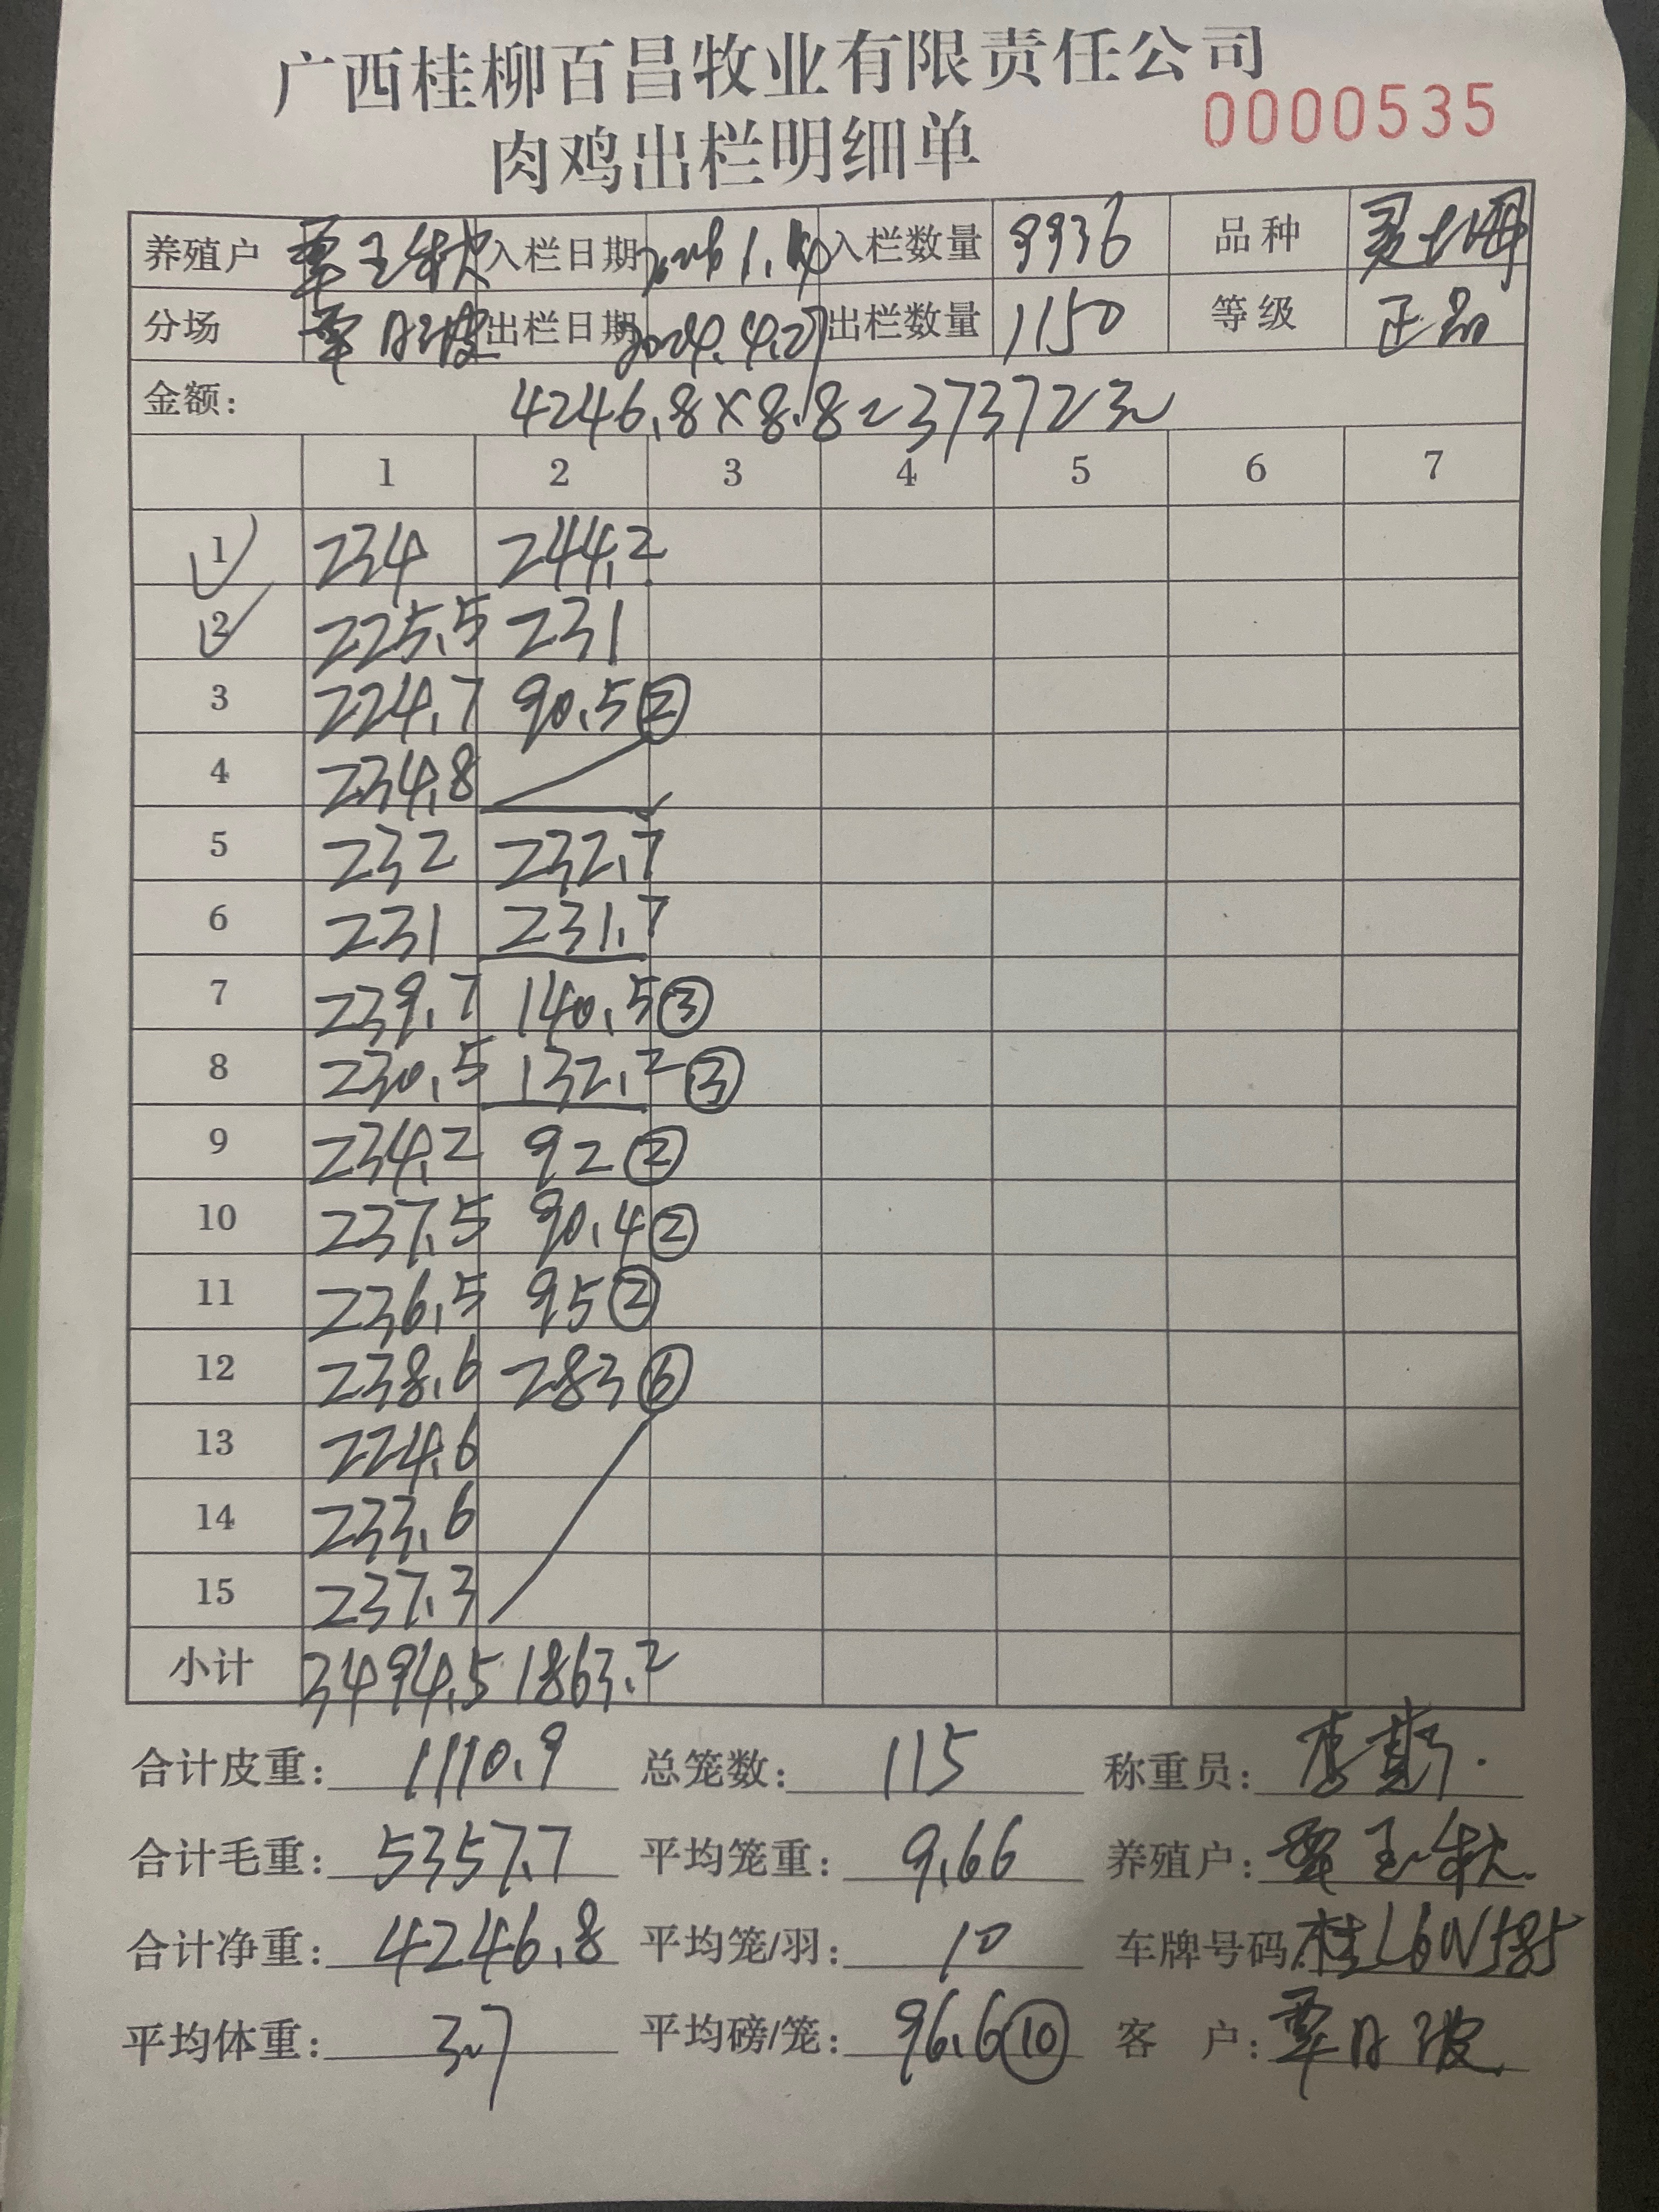 广西桂柳百昌牧业有限责任公司
0000535
肉鸡出栏明细单
养殖户 覃玉秋 入栏日期 入栏数量 9936 品种
分场 覃日波 出栏日期 2024.4.27 出栏数量 1150 等级 正品
金额: 4246.8×8.8=37372元
1 2 3 4 5 6 7
1 234 244.2
2 225.5 231
3 224.7 90.5②
4 234.8
5 232 232.7
6 231 231.7
7 239.7 140.5③
8 230.5 132.2③
9 234.2 92②
10 237.5 90.4②
11 236.5 95②
12 238.6 283⑥
13 224.6
14 233.6
15 237.3
小计 3494.5 1863.2
合计皮重: 1110.9 总笼数: 115 称重员:
合计毛重: 5357.7 平均笼重: 9.66 养殖户: 覃玉秋
合计净重: 4246.8 平均笼/羽: 10 车牌号码:
平均体重: 3.7 平均磅/笼: 96.6⑩ 客 户: 覃日波